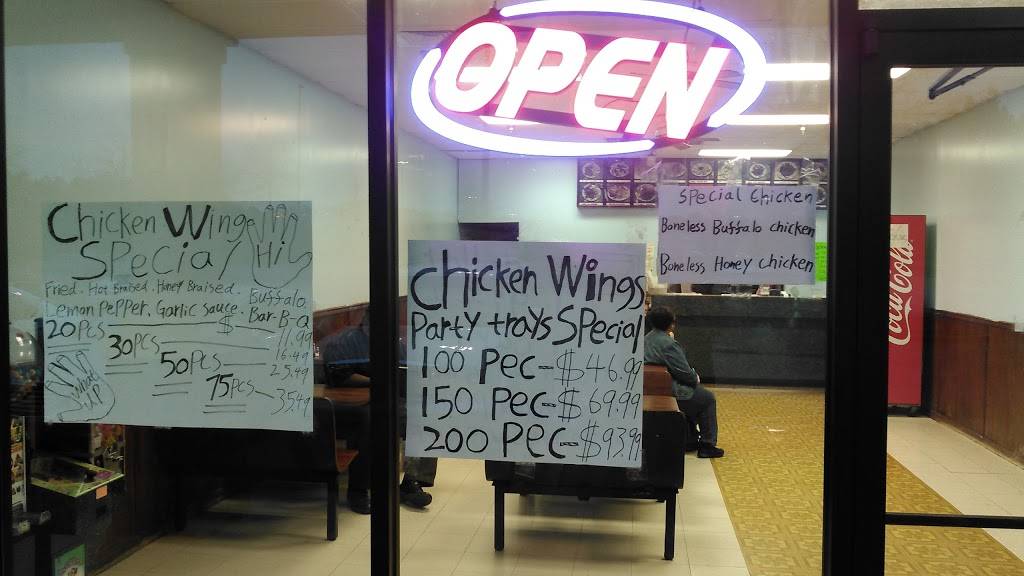 OPEN
Chicken Wings
Special
Hi
Fried. Hot Braised. Honey Braised.
Lemon Pepper. Garlic sauce. Buffalo
Bar-B-Q
20 Pcs $11.99
30 Pcs 16.49
50 Pcs 25.49
75 Pcs 35.49
What UP
Chicken Wings
Party trays SPecial
100 Pec-$46.99
150 Pec-$69.99
200 Pec-$93.99
SPecial Chicken
Boneless Buffalo chicken
Boneless Honey chicken
Coca-Cola